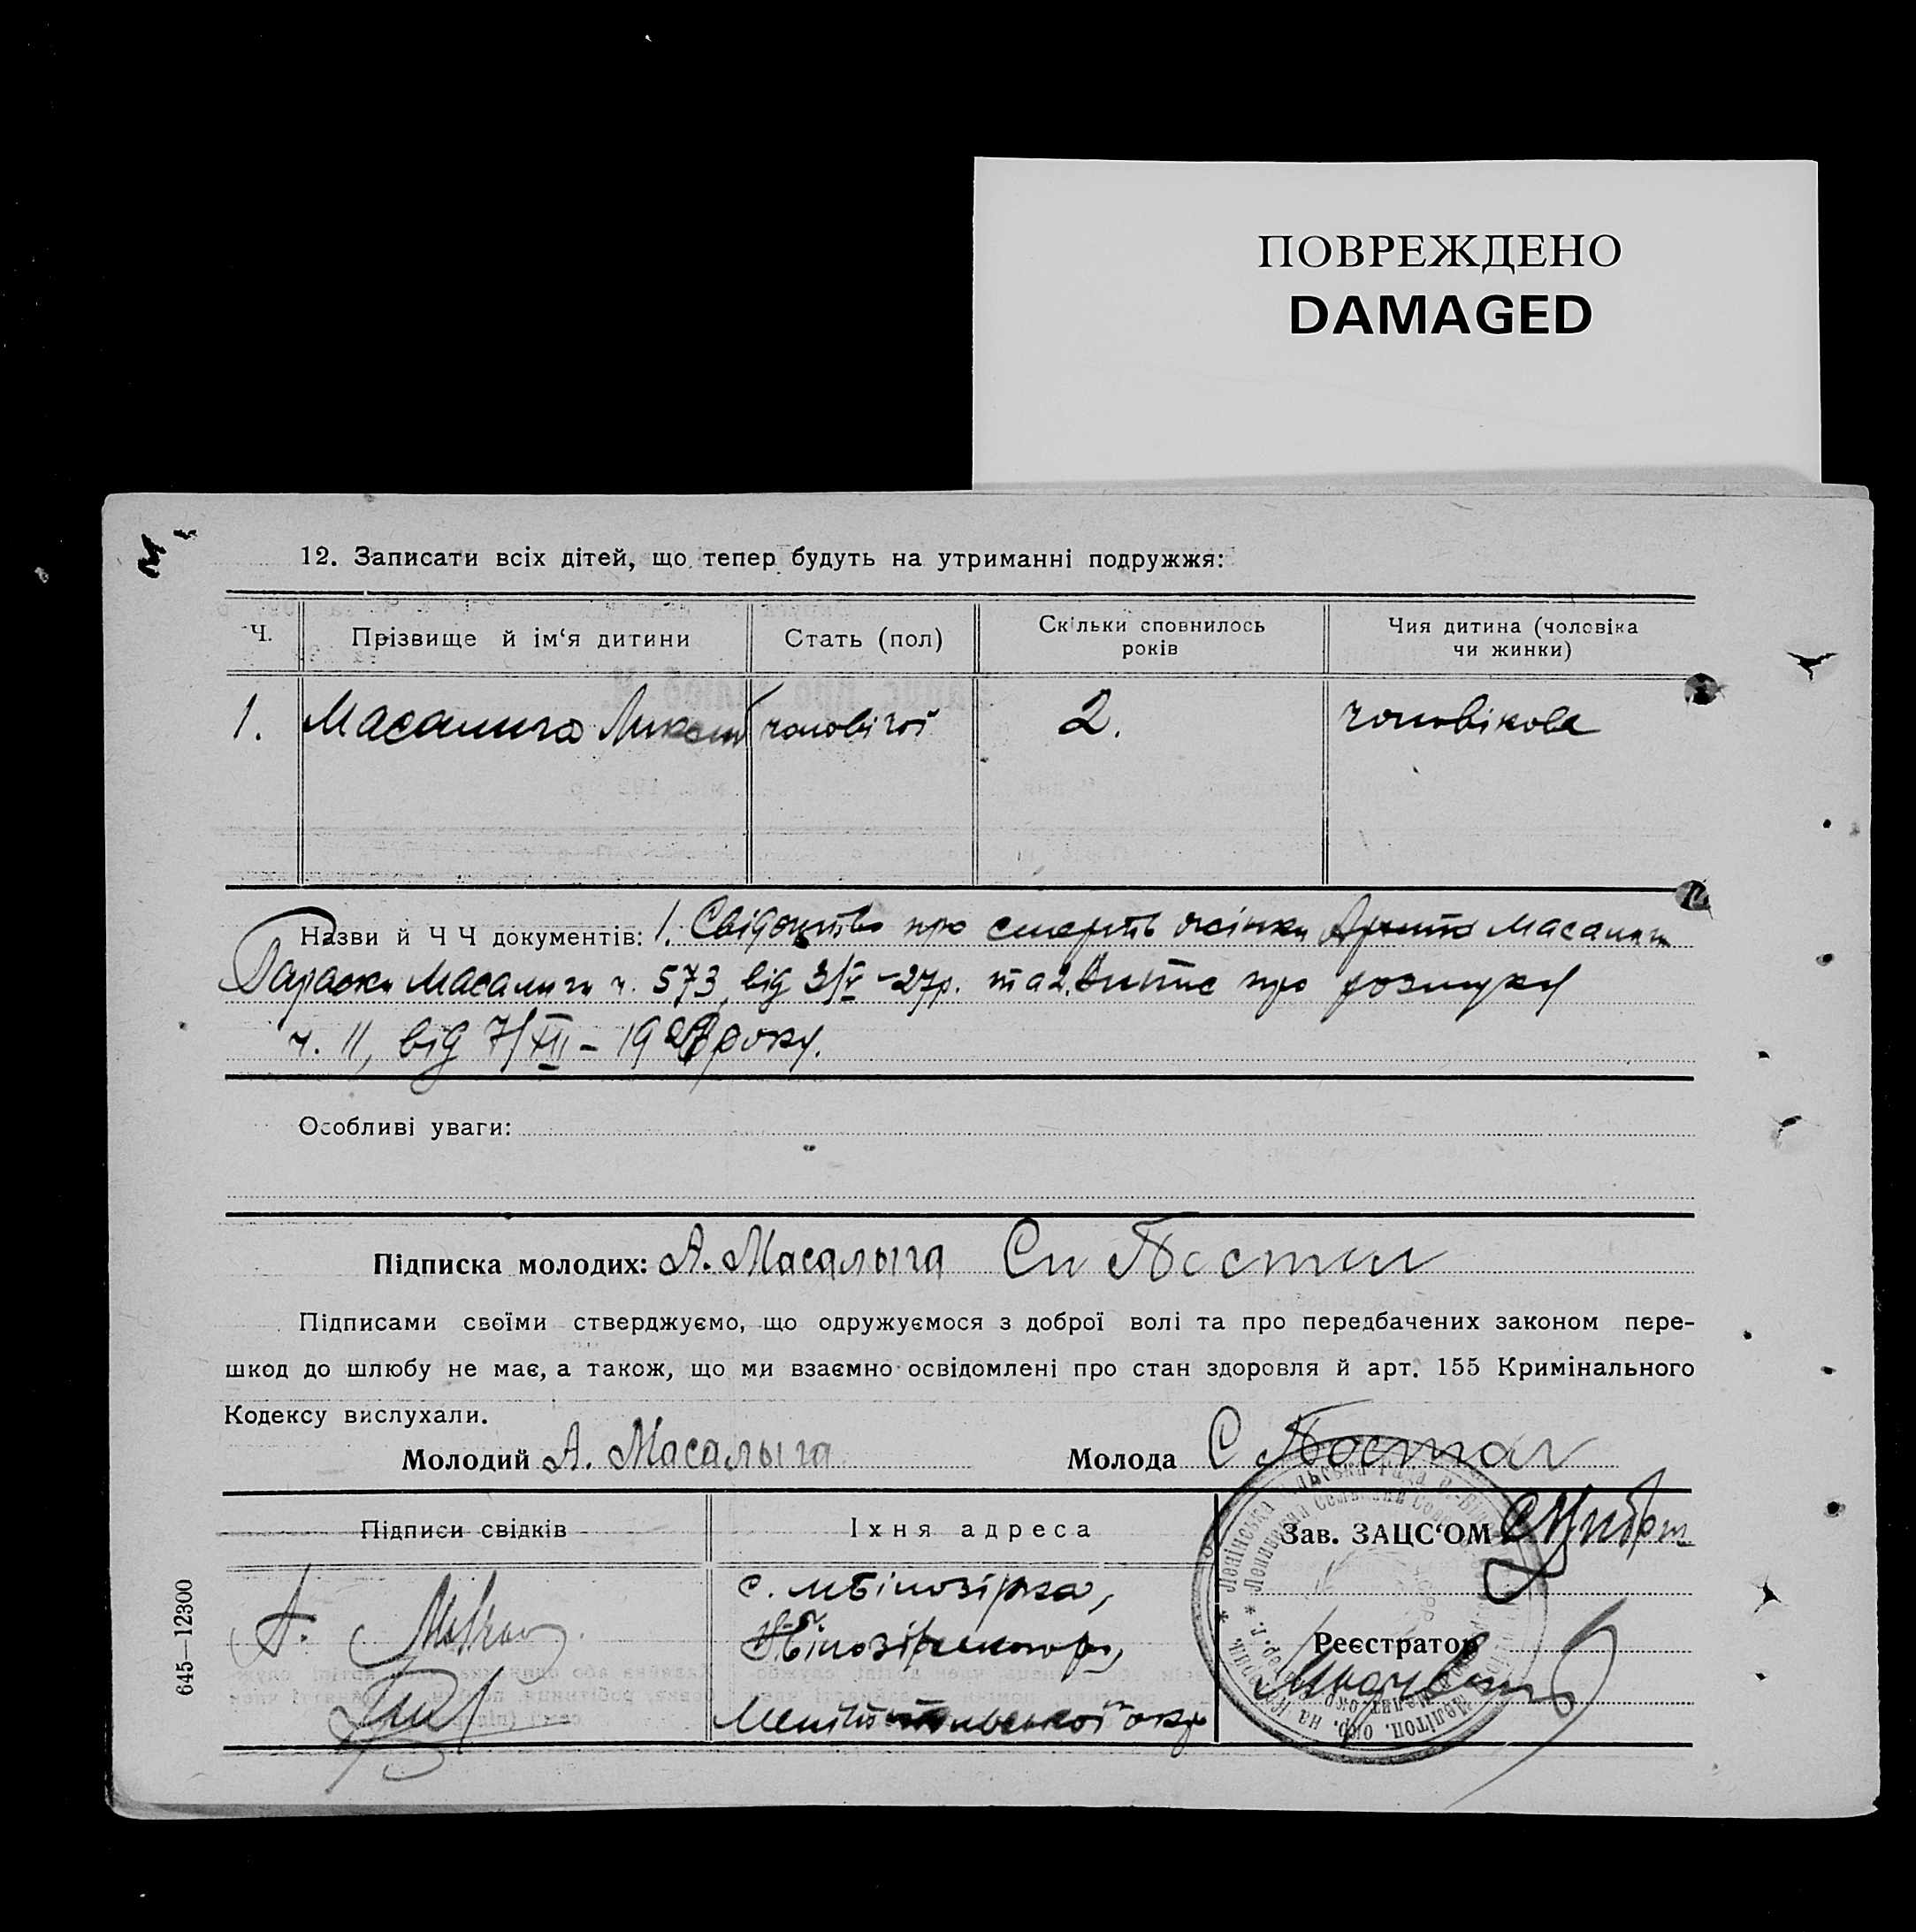 ПОВРЕЖДЕНО
DAMAGED
12. Записати всіх дітей, що тепер будуть на утриманні подружжя:
Ч.
Прізвище й ім‘я дитини
Стать (пол)
Скільки сповнилось років
Чия дитина (чоловіка чи жинки)
1.
Масалига
чоловічої
2.
чоловікова
Назви й Ч Ч документів: 1. Свідоцтво про смерть жінки Масалиги
Параски Масалиги ч. 573, від 3/V -27р. та 2. Витпис про розлуку
ч. 11, від 7/XII - 19 року.
Особливі уваги:
Підписка молодих: А. Масалыга
Підписами своїми стверджуємо, що одружуємося з доброї волі та про передбачених законом пере-
шкод до шлюбу не має, а також, що ми взаємно освідомлені про стан здоровля й арт. 155 Кримінального
Кодексу вислухали.
Молодий А. Масалыга
Молода С Постол
Підписи свідків
Їхня адреса
Зав. ЗАЦС‘ОМ
с. мБілозірка,
Реєстратор
Мелітопільської окр
645—12300